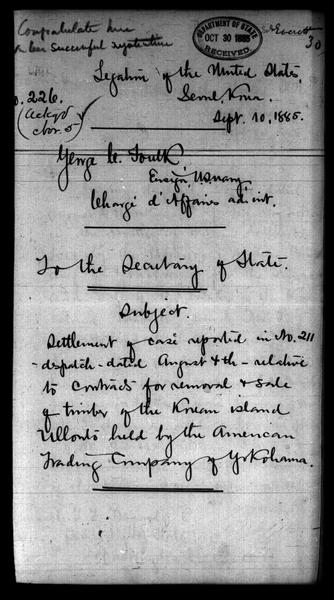 Congratulate him
on his successful negotiation
Everett
30
DEPARTMENT OF STATE
OCT 30 1885
RECEIVED
Legation of the United States,
Seoul, Korea
Sept. 10, 1885.
o. 226.
(Ackgd
Nov. 5)
George C. Foulk
Ensign, U.S. Navy,
Chargé d'Affaires ad int.
To the Secretary of State.
Subject.
Settlement of case reported in No. 211
- dispatch - dated August 4th - relative
to contracts for removal & sale
of timber of the Korean island
Ullondo held by the American
Trading Company of Yokohama.